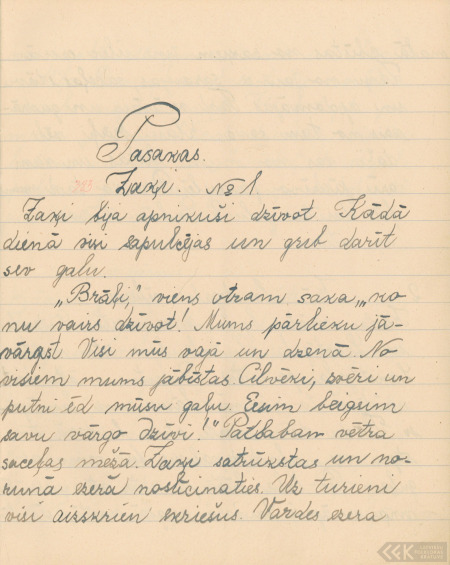 Pasakas.
713 Zaķi. № 1
Zaķi bija apnikuši dzīvot Kādā
dienā visi sapulcējas un grib darīt
sev galu.
„Brāļi," viens otram saka, „ko
nu vairs dzīvot! Mums pārlieku jā-
vārgst Visi mūs vajā un dzenā. No
visiem mums jābīstas. Cilvēki, zvēri un
putni ēd mūsu gaļu. Eesim beigsim
savu vārgo dzīvi!" Patlaban vētra
saceļas mežā. Zaķi satrūkstas un no-
runā ezerā noslīcināties. Uz turieni
visi aizskrien skriešus. Vardes ezera